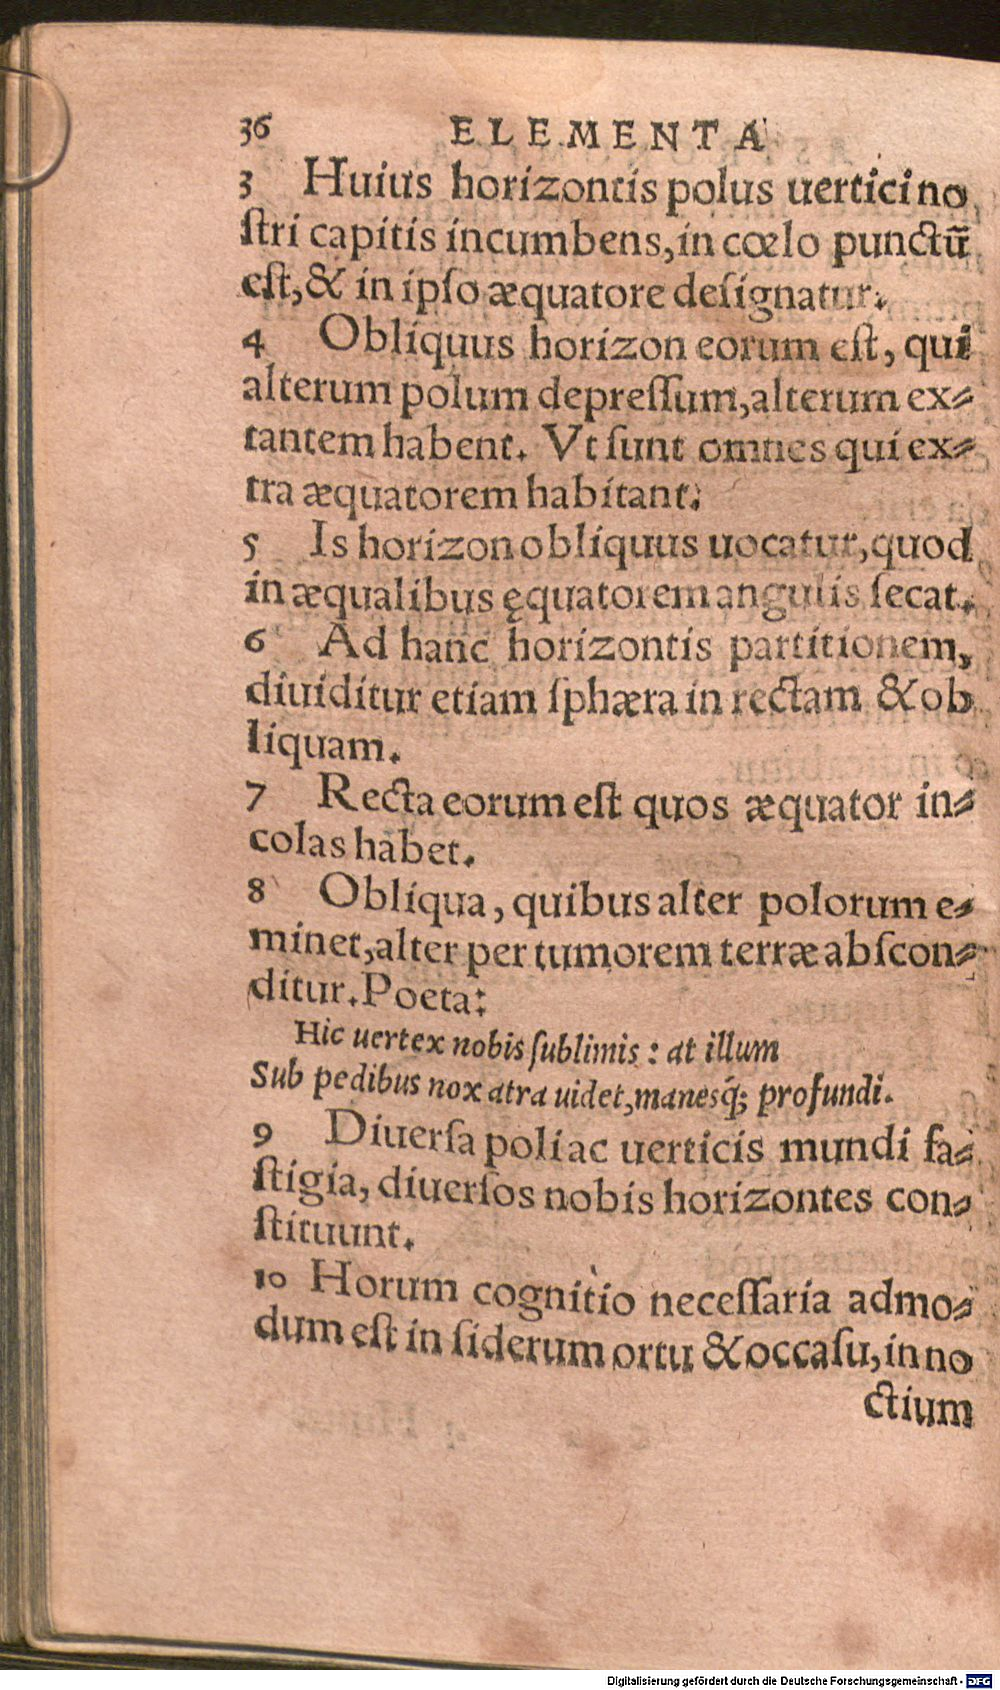 36 ELEMENTA
3 Huius horizontis polus uertici no
ſtri capitis incumbens, in cœlo punctū
eſt, & in ipſo æquatore deſignatur.
4 Obliquus horizon eorum eſt, qui
alterum polum depreſſum, alterum ex⸗
tantem habent. Vt ſunt omnes qui ex⸗
tra æquatorem habitant.
5 Is horizon obliquus uocatur, quod
in æqualibus ęquatorem angulis ſecat.
6 Ad hanc horizontis partitionem,
diuiditur etiam ſphæra in rectam & ob
liquam.
7 Recta eorum eſt quos æquator in⸗
colas habet.
8 Obliqua, quibus alter polorum e⸗
minet, alter per tumorem terræ abſcon⸗
ditur. Poeta:
Hic uertex nobis ſublimis: at illum
Sub pedibus nox atra uidet, manesq́; profundi.
9 Diuerſa poli ac uerticis mundi fa⸗
ſtigia, diuerſos nobis horizontes con⸗
ſtituunt.
10 Horum cognitio neceſſaria admo⸗
dum eſt in ſiderum ortu & occaſu, in no
ctium
Digitalisierung gefördert durch die Deutsche Forschungsgemeinschaft - DFG